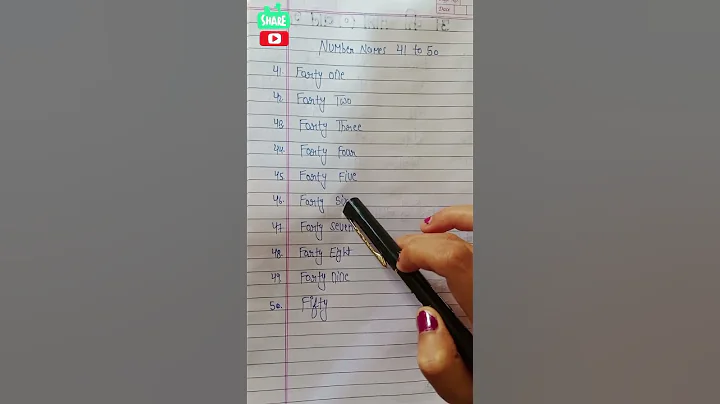 SHARE
Date
Number Names 41 to 50
41. Farty one
42. Farty Two
43. Farty Three
44. Farty Foar
45. Farty Five
46. Farty Six
47. Farty seven
48. Farty Eight
49. Farty nine
50. Fifty